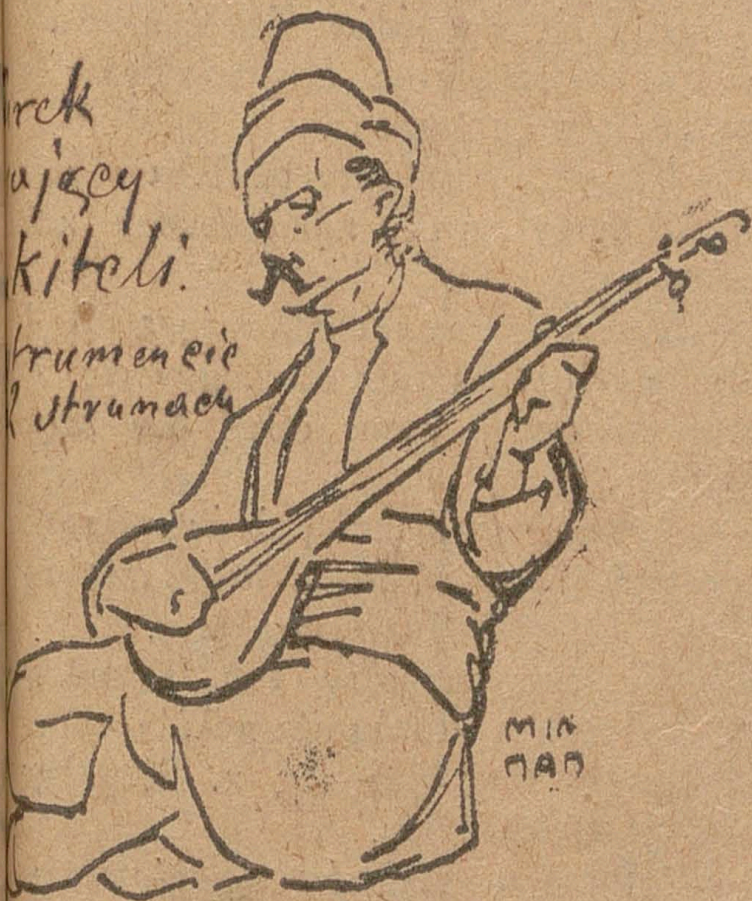 rek
ający
kiteli.
trumencie
2 strunach
MIN